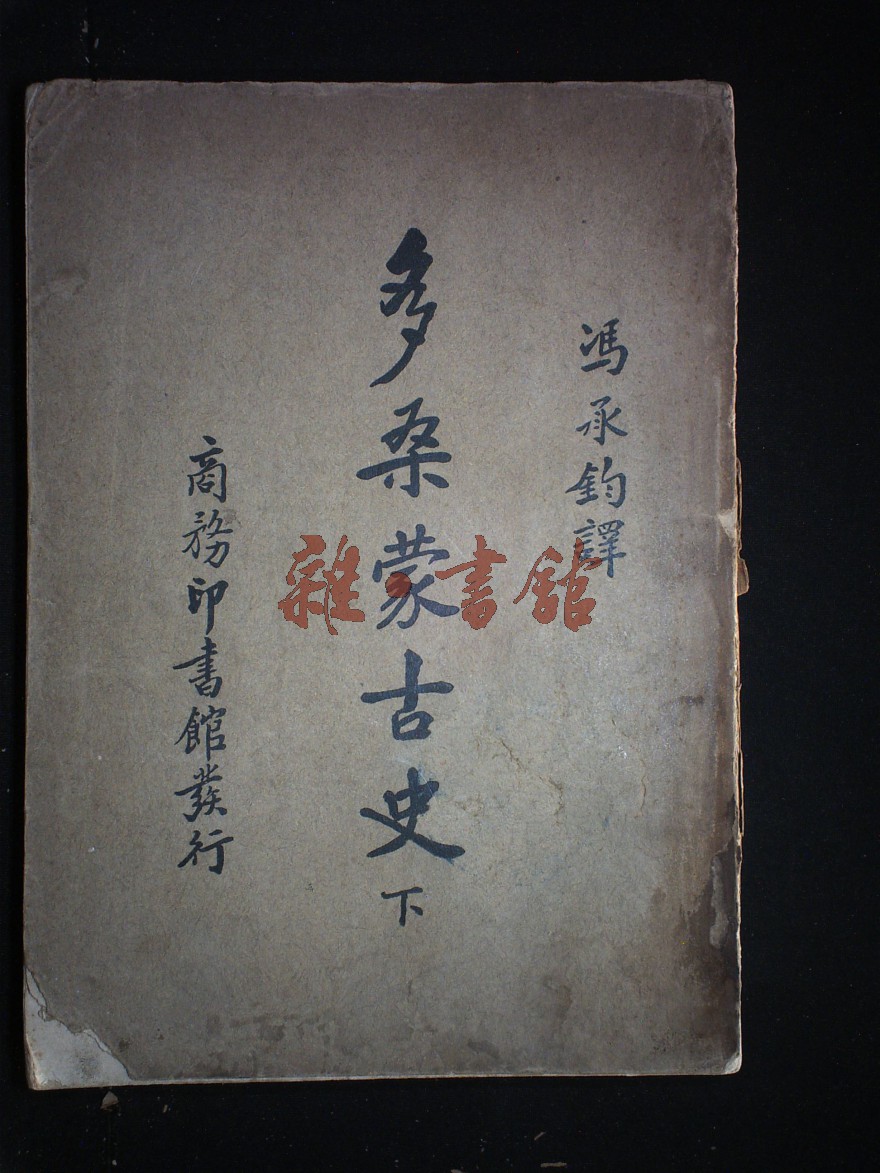 馮承鈞譯
多桑蒙古史 下
商務印書館發行
雜·書館